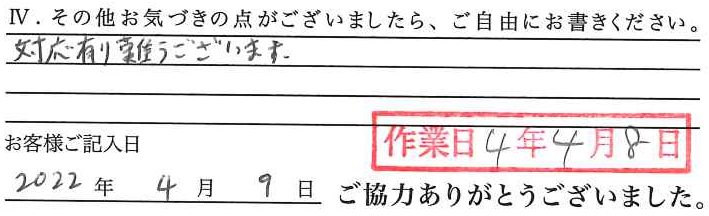 Ⅳ．その他お気づきの点がございましたら、ご自由にお書きください。
対応有り難うございます。
お客様ご記入日
作業日4年4月8日
2022年 4月 9日
ご協力ありがとうございました。